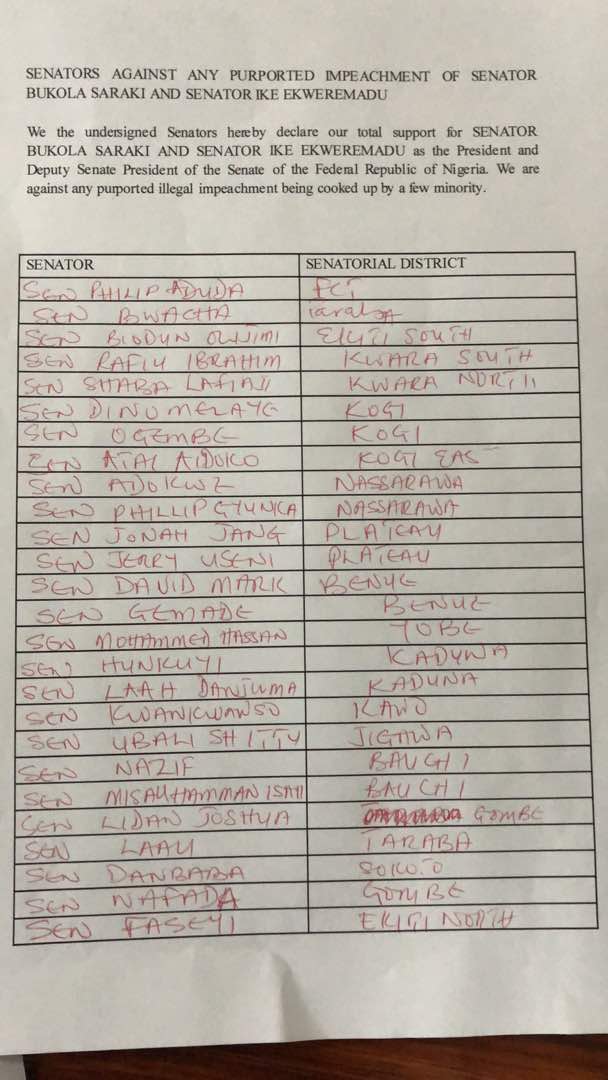 SENATORS AGAINST ANY PURPORTED IMPEACHMENT OF SENATOR
BUKOLA SARAKI AND SENATOR IKE EKWEREMADU
We the undersigned Senators hereby declare our total support for SENATOR
BUKOLA SARAKI AND SENATOR IKE EKWEREMADU as the President and
Deputy Senate President of the Senate of the Federal Republic of Nigeria. We are
against any purported illegal impeachment being cooked up by a few minority.
SENATOR SENATORIAL DISTRICT
SEN PHILIP ADUDA FCT
SEN BWACHA taraba
SEN BIODUN OLUJIMI EKITI SOUTH
SEN RAFIU IBRAHIM KWARA SOUTH
SEN SHABA LAFIAJI KWARA NORTH
SEN DINO MELAYE KOGI
SEN OGEMBE KOGI
SEN ATAI AIDOKO KOGI EAST
SEN ADOKWE NASSARAWA
SEN PHILLIP GYUNKA NASSARAWA
SEN JONAH JANG PLATEAU
SEN JERRY USENI PLATEAU
SEN DAVID MARK BENUE
SEN GEMADE BENUE
SEN MOHAMMED HASSAN YOBE
SEN HUNKUYI KADUNA
SEN LAAH DANJUMA KADUNA
SEN KWANKWANSO KANO
SEN UBALI SHITTU JIGAWA
SEN NAZIF BAUCHI
SEN MISAUHAMMAN ISAH BAUCHI
SEN LIDAN JOSHUA GOMBE
SEN LAAU TARABA
SEN DANBABA SOKOTO
SEN NAFADA GOMBE
SEN FASEYI EKITI NORTH